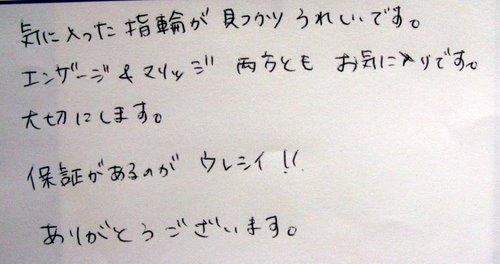 気に入った指輪が見つかりうれしいです。
エンゲージ&マリッジ 両方とも お気に入りです。
大切にします。
保証があるのが ウレシイ!!
ありがとうございます。